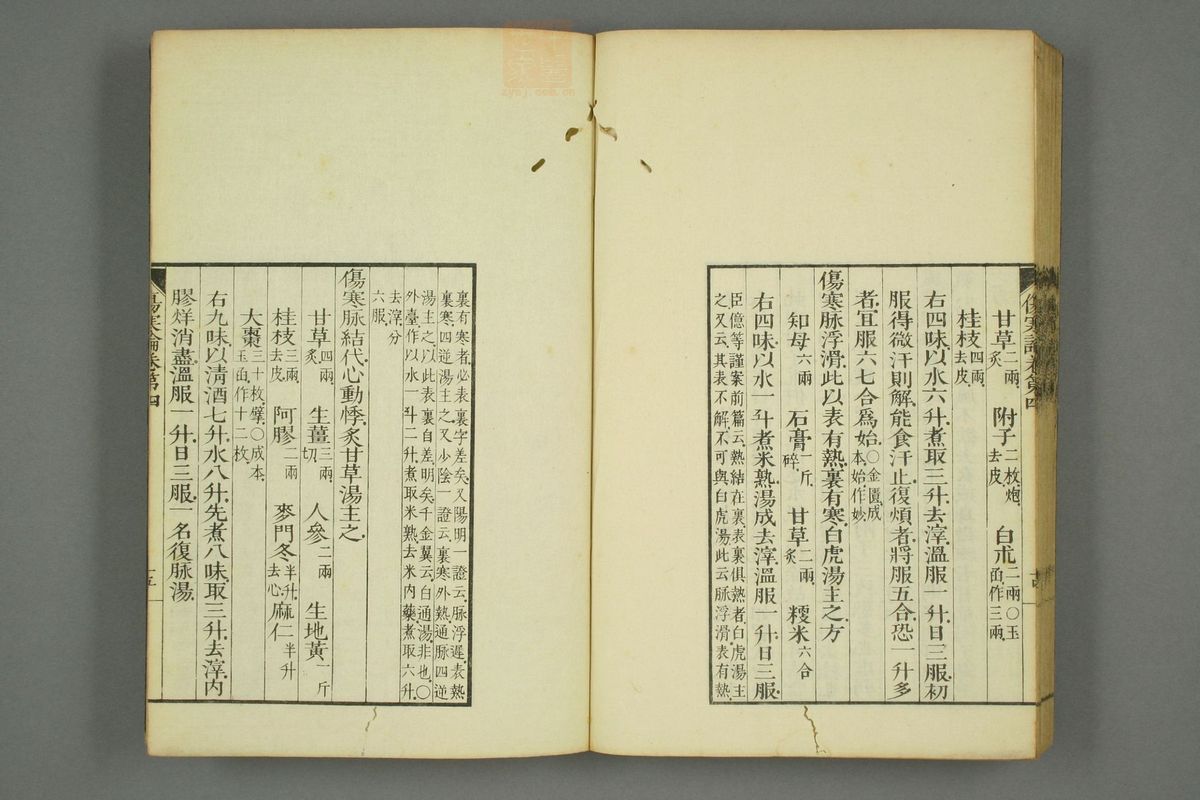 傷寒論卷第四
甘草二兩炙 附子二枚炮去皮 白朮二兩○玉函作三兩
桂枝四兩去皮
右四味以水六升煮取三升去滓溫服一升日三服初
服得微汗則解能食汗止復煩者將服五合恐一升多
者宜服六七合爲始○金匱成本始作妙
傷寒脉浮滑此以表有熱裏有寒白虎湯主之方
知母六兩 石膏一斤碎 甘草二兩炙 粳米六合
右四味以水一斗煮米熟湯成去滓溫服一升日三服
臣億等謹案前篇云熱結在裏表裏俱熱者白虎湯主
之又云其表不解不可與白虎湯此云脉浮滑表有熱
裏有寒者必表裏字差矣又陽明一證云脉浮遲表熱
裏寒四逆湯主之又少陰一證云裏寒外熱通脉四逆
湯主之以此表裏自差明矣千金翼云白通湯非也○
外臺作以水一斗二升煮取米熟去米內藥煮取六升
去滓分
六服
傷寒脉結代心動悸炙甘草湯主之
甘草四兩炙 生薑三兩切 人參二兩 生地黃一斤
桂枝三兩去皮 阿膠二兩 麥門冬半升去心 麻仁半升
大棗三十枚擘○成本玉函作十二枚
右九味以清酒七升水八升先煮八味取三升去滓內
膠烊消盡溫服一升日三服一名復脉湯
傷寒論卷第四
十五
zysj.com.cn